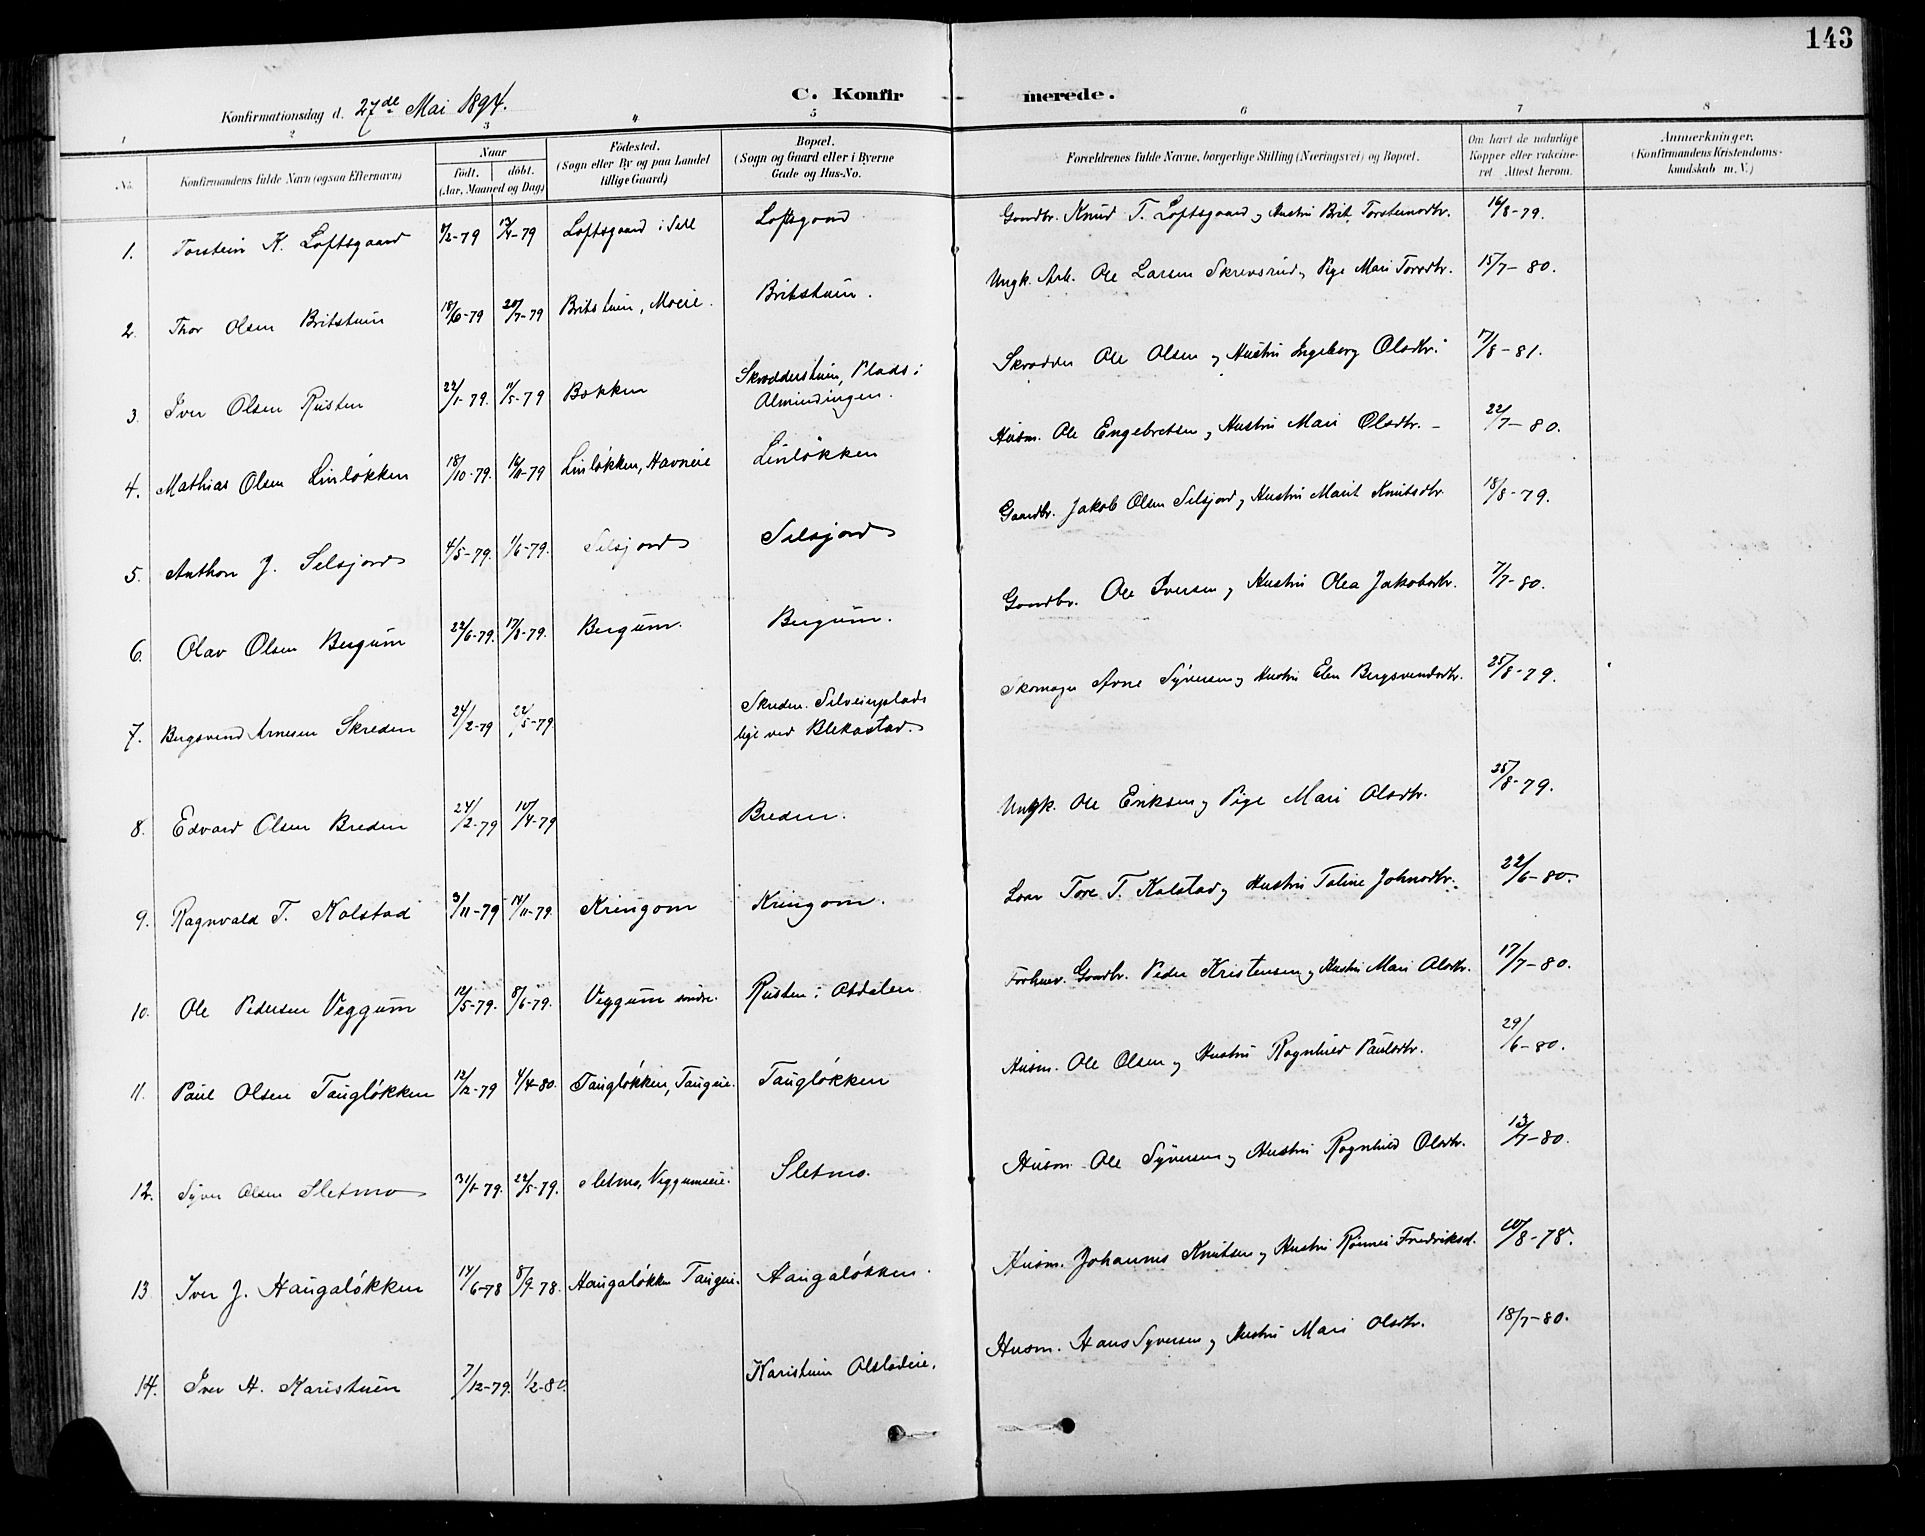 143
Konfirmationsdag d. 27de Mai 1894.
C. Konfirmerede.
1 2 3 4 5 6 7 8
No.
Konfirmandens fulde Navn (ogsaa Efternavn)
Naar
født. døbt.
(Aar, Maaned og Dag)
Fødested.
(Sogn eller By og paa Landet
tillige Gaard)
Bopæl.
(Sogn og Gaard eller i Byerne
Gade og Hus-No.
Forældrenes fulde Navne, borgerlige Stilling (Næringsvei) og Bopæl.
Om havt de naturlige
Kopper eller vakcine-
ret. Attest herom.
Anmærkninger.
(Konfirmandens Kristendoms-
kundskab m. V.)
1. Torstein K. Loftsgaard /2-79 13/4-79 Loftsgaard i Sell Loftsgaard Gaardbr. Knud T. Loftsgaard og Hustru Brit Torsteinsdtr. 16/8-79.
2. Thor Olsen Britstuen 18/6-79 20/7-79 Britstuen, Moeie. Britstuen. Ungk. Arb. Ole Larsen Skrevsrud, Pige Mari Torsdtr. 15/7-80.
3. Iver Olsen Rusten 22/1-79. /5-79 Bækken Skrædderstuen, Plads i
Almindingen. Skrædder Ole Olsen og Hustru Ingeborg Olsdtr. 17/8-81.
4. Mathias Olsen Linløkken 18/10-79. 16/11-79 Linløkken, Havneie Linløkken Husm. Ole Engebretsen og Hustru Mari Olsdtr. - 22/7-80.
5. Anthon J. Selsjord 4/5-79. 1/6-79. Selsjord Selsjord Gaardbr. Jakob Olsen Selsjord og Hustru Marit Knutsdtr. 18/8-79.
6. Olav Olsen Bergum 22/6-79. 17/8-79. Bergum. Bergum. Gaardbr. Ole Iversen og Hustru Olea Jakobsdtr. 7/7-80.
7. Bergsvend Arnesen Skreden 24/2-79 22/5-79. Skreden. Selveierplads
lige ved Blekastad. Skomager Arne Syversen og Hustru Elen Bergsvendsdtr. 25/8-79.
8. Edvard Olsen Breden 24/2-79 10/4-79 Breden. Ungk. Ole Eriksen og Pige Mari Olsdtr. 25/8-79.
9. Ragnvald T. Kolstad 3/11-79 14/11-79. Kringom Kringom. Tore T. Kolstad og Hustru Taline Johnsdtr. 22/6-80.
10. Ole Pedersen Veggum 12/5-79. 8/6-79. Veggum søndre. Rusten i Ótdalen Forhenv. Gaardbr. Peder Kristensen og Hustru Mari Olsdtr. 17/7-80.
11. Paul Olsen Taugløkken 12/12-79 4/4-80. Taugløkken, Taugeie. Taugløkken Husm. Ole Olsen og Hustru Ragnhild Paulsdtr. 29/6-80.
12. Syver Olsen Sletmo 31/1-79. 22/5-79. Sletmo, Veggumseie. Sletmo. Husm. Ole Syversen og Hustru Ragnhild Olsdtr. 13/7-80.
13 Iver J. Haugaløkken 14/6-78 8/9-78. Haugaløkken Taugeie. Haugaløkken. Husm. Johannes Knutsen og Hustru Rønnei Fredriksd. 10/8-78.
14. Iver H. Karistuen 7/12-79. 1/2-80. Karistuen Olstadeie. Husm. Hans Syversen og Hustru Mari Olsdtr. 18/7-80.